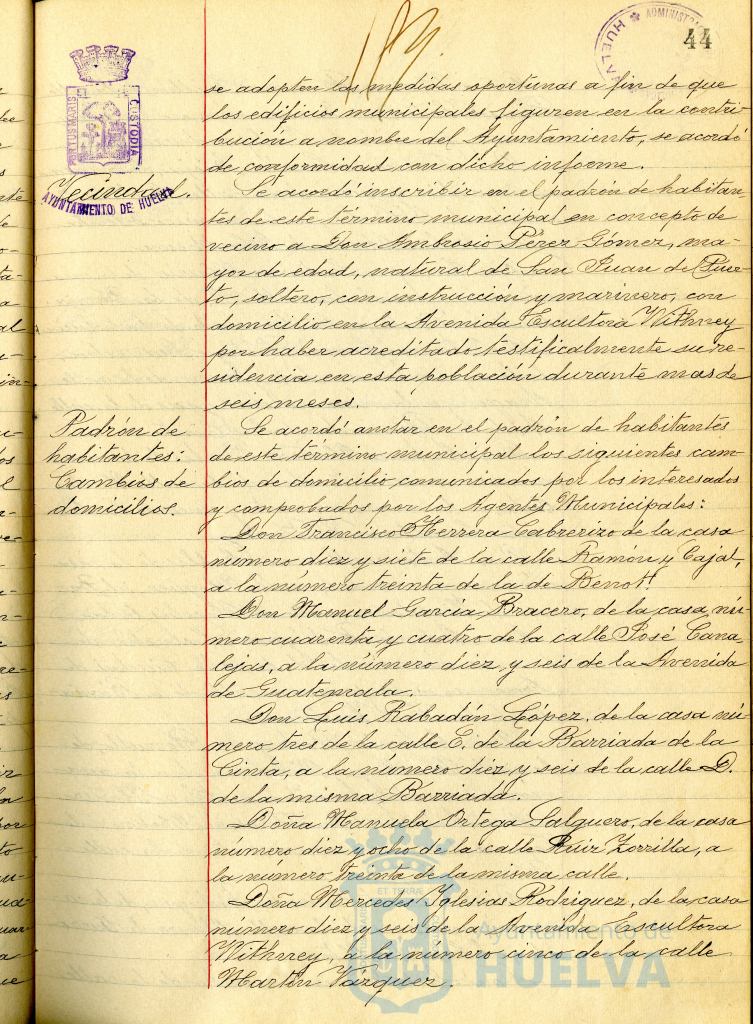 44
ADMINISTR
HUELVA
PORTUS MARIS
CUSTODIA
AYUNTAMIENTO DE HUELVA
se adopten las medidas oportunas a fin de que
los edificios municipales figuren en la contri-
bución a nombre del Ayuntamiento, se acordó
de conformidad con dicho informe.
Vecindad.
Se acordó inscribir en el padrón de habitan-
tes de este término municipal en concepto de
vecino a Don Ambrosio Pérez Gómez, ma-
yor de edad, natural de San Juan del Puer-
to, soltero, con instrucción y marinero, con
domicilio en la Avenida Escultora Withney
por haber acreditado testificalmente su re-
sidencia en esta población durante mas de
seis meses.
Padrón de
habitantes:
Cambios de
domicilios.
Se acordó anotar en el padrón de habitantes
de este término municipal los siguientes cam
bios de domicilio comunicados por los interesados
y comprobados por los Agentes Municipales:
Don Francisco Herrera Cabrerizo de la casa
número diez y siete de la calle Ramón y Cajal,
a la número treinta de la de Berrot.
Don Manuel García Bracero, de la casa nú-
mero cuarenta y cuatro de la calle José Cana
lejas, a la número diez y seis de la Avenida
de Guatemala.
Don Luis Rabadán López, de la casa nú
mero tres de la calle C. de la Barriada de la
Cinta, a la número diez y seis de la calle D.
de la misma Barriada.
Doña Manuela Ortega Salguero, de la casa
número diez y ocho de la calle Ruiz Zorrilla, a
la número treinta de la misma calle.
Doña Mercedes Iglesias Rodriguez, de la casa
número diez y seis de la Avenida Escultora
Withney, a la número cinco de la calle
Martín Vázquez.
Ayuntamiento de
HUELVA